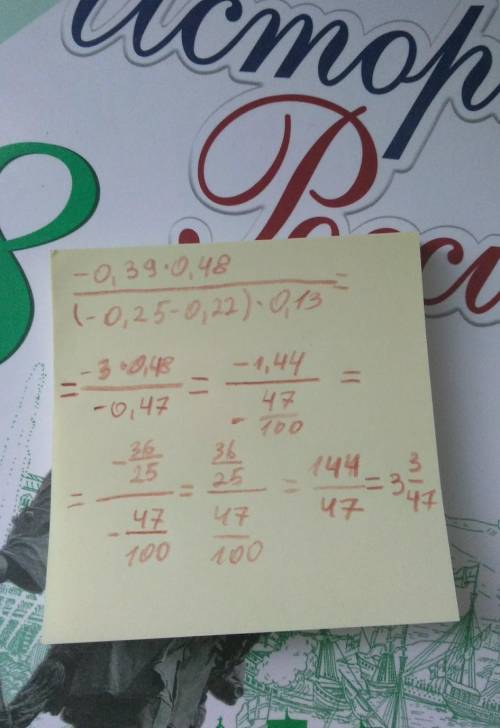 истор
Росси
8
-0,39·0,48 / (-0,25-0,22)·0,13 =
= -3·0,48 / -0,47 = -1,44 / -47/100 =
= -36/25 / -47/100 = 36/25 / 47/100 = 144/47 = 3 3/47